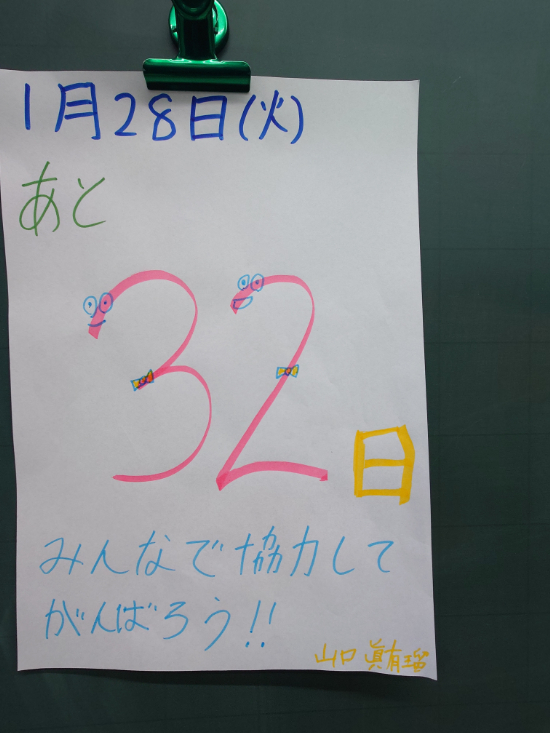 1月28日(火)
あと
32日
みんなで協力して
がんばろう!!
山口 眞有瑠